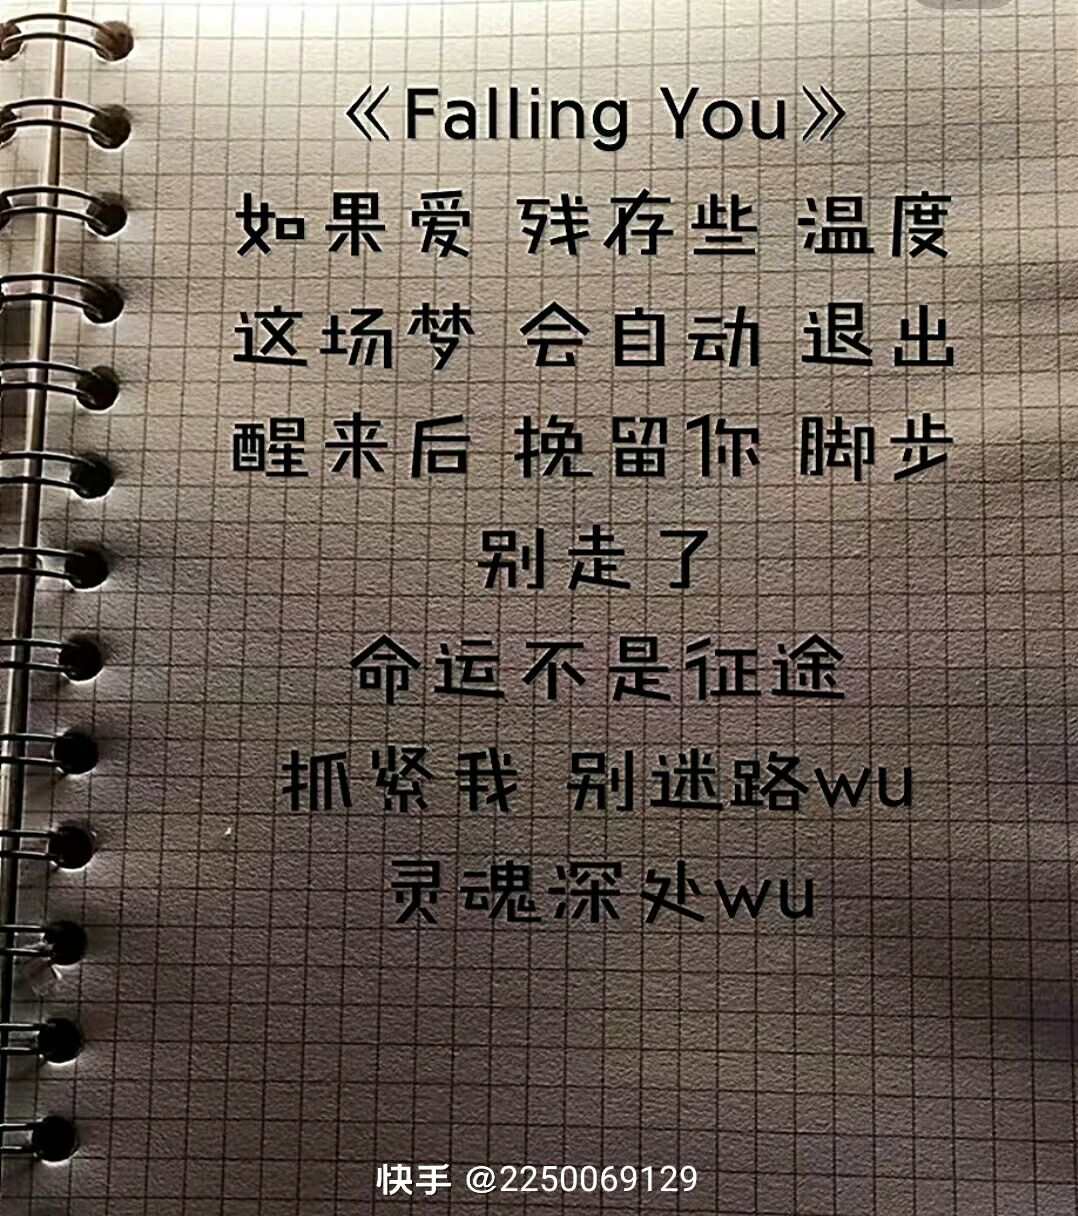 《Falling You》
如果爱 残存些 温度
这场梦 会自动 退出
醒来后 挽留你 脚步
别走了
命运不是征途
抓紧我 别迷路wu
灵魂深处wu
快手 @2250069129